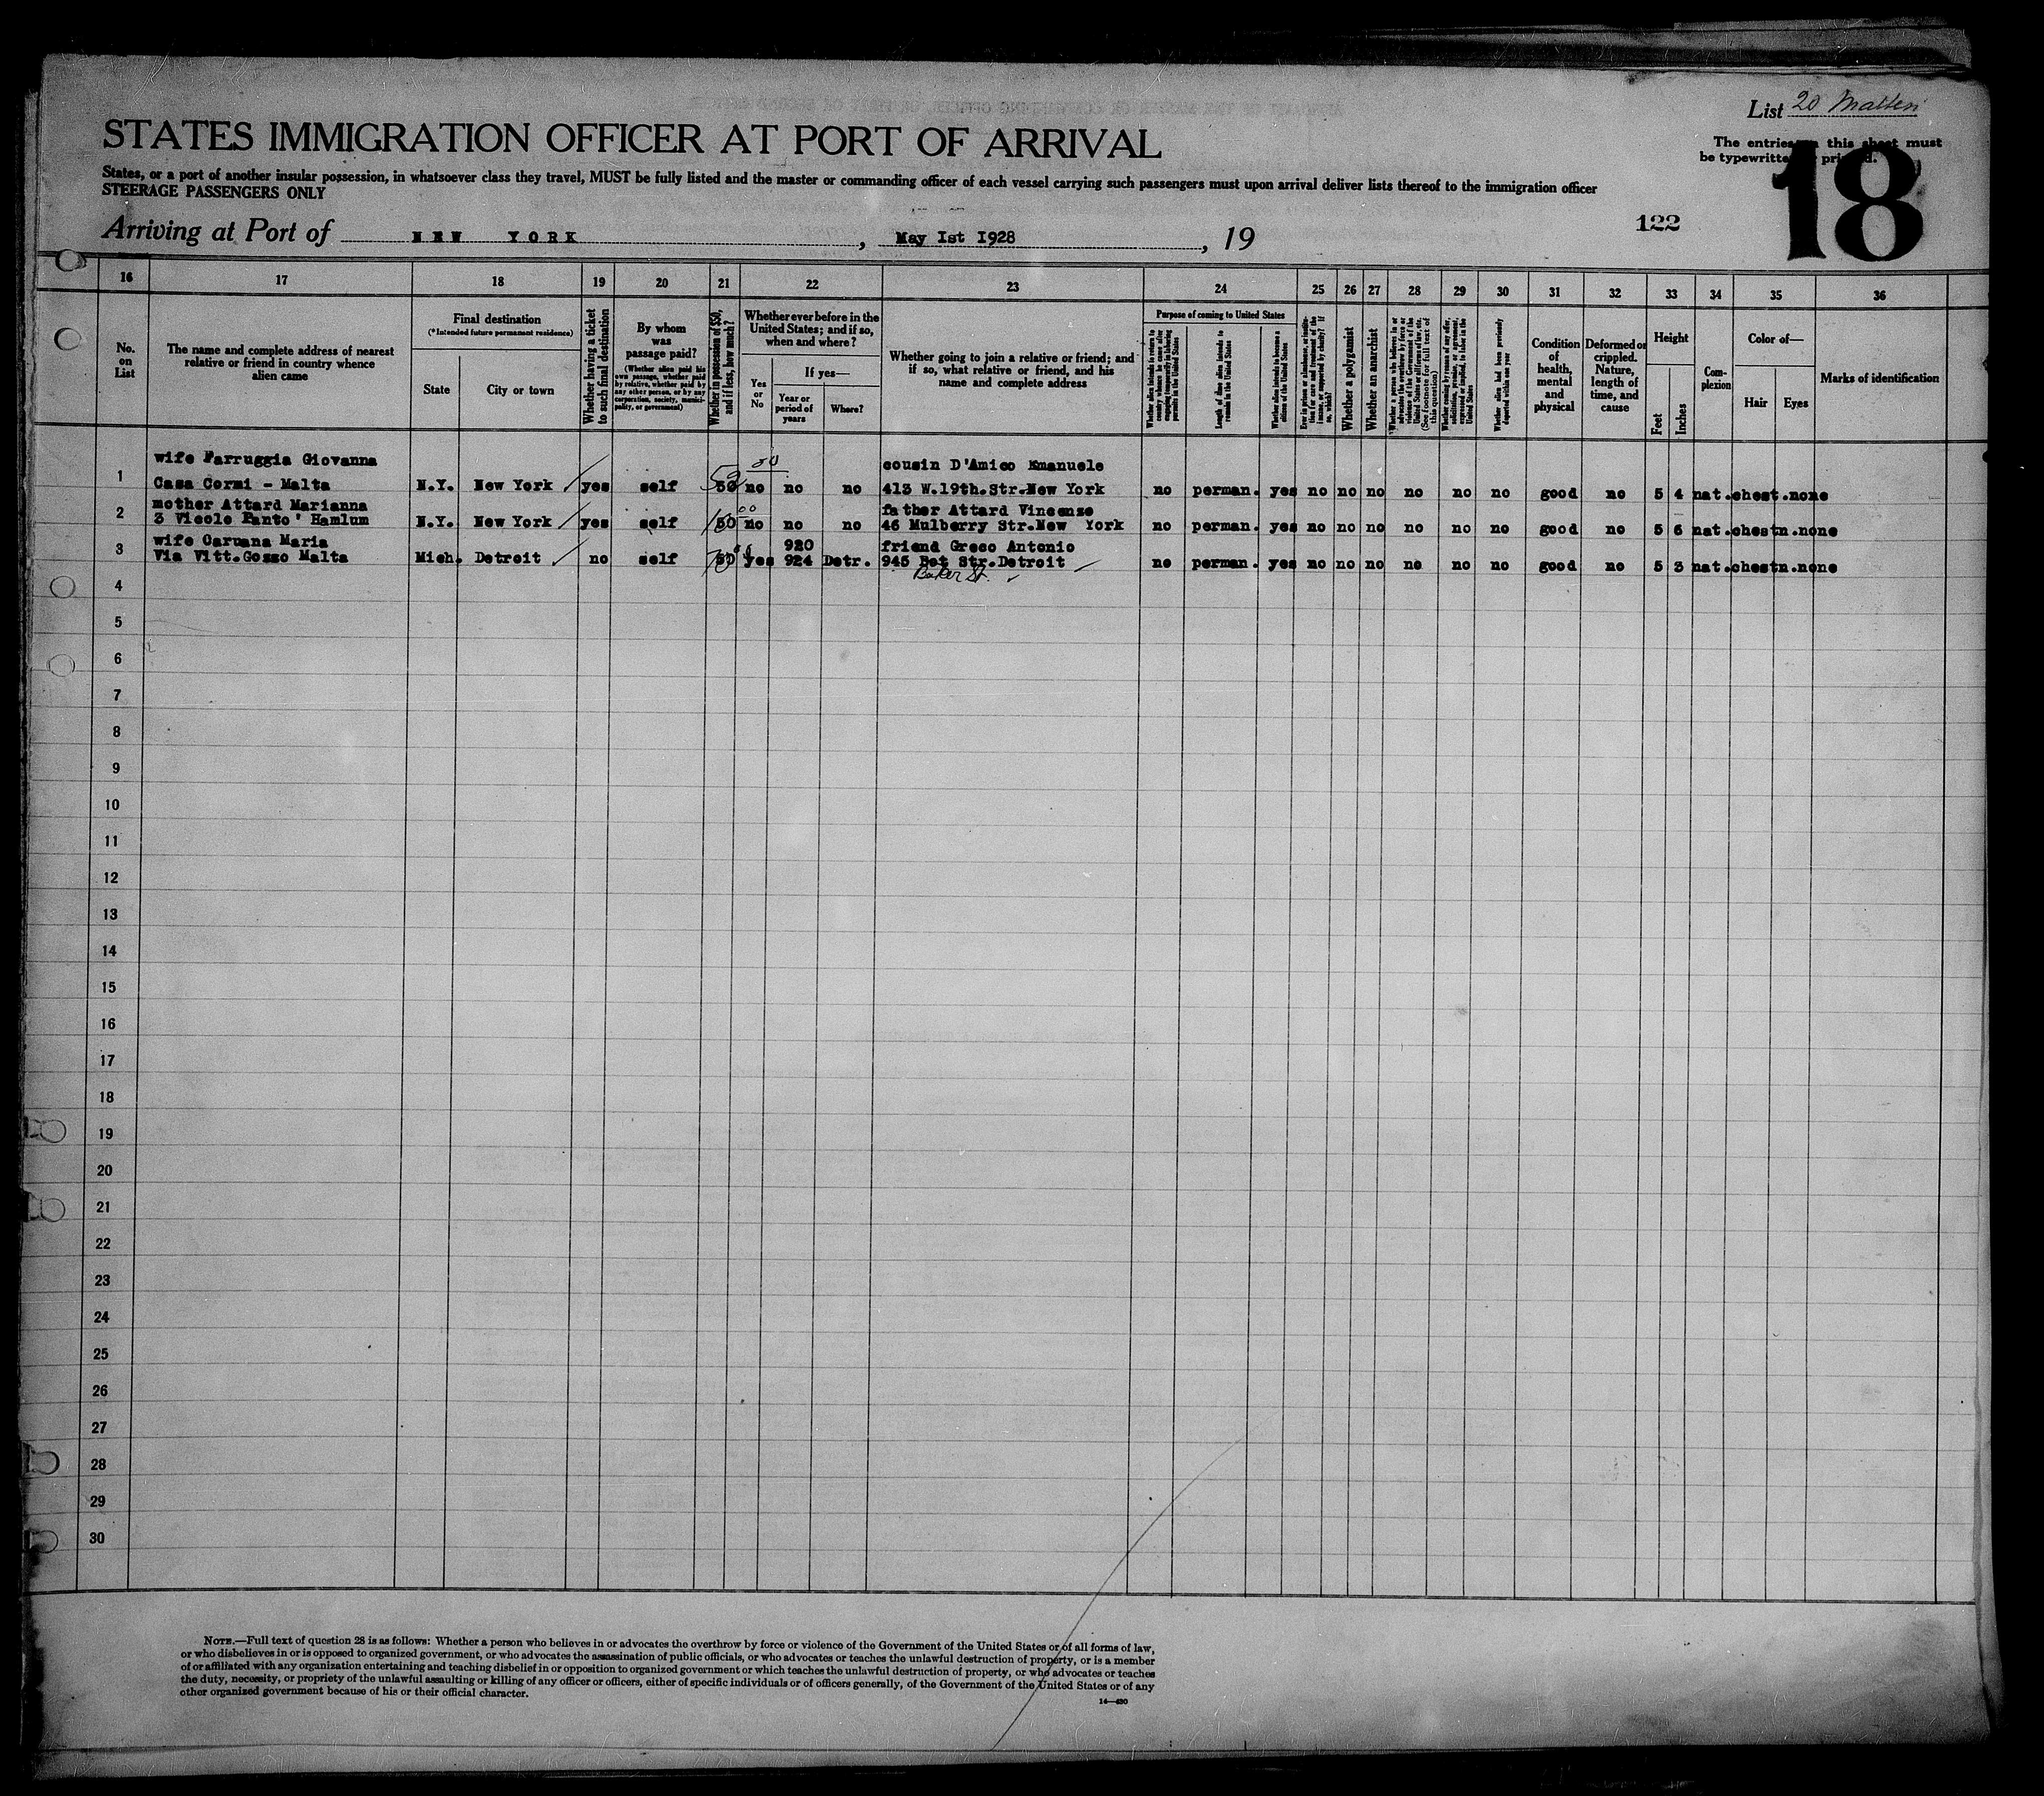 List 20 Maltesi
STATES IMMIGRATION OFFICER AT PORT OF ARRIVAL
The entries on this sheet must
be typewritten or printed.
18
States, or a port of another insular possession, in whatsoever class they travel, MUST be fully listed and the master or commanding officer of each vessel carrying such passengers must upon arrival deliver lists thereof to the immigration officer
STEERAGE PASSENGERS ONLY
Arriving at Port of NEW YORK, May 1st 1928, 19
122
16 17 18 19 20 21 22 23 24 25 26 27 28 29 30 31 32 33 34 35 36
No. on List
The name and complete address of nearest relative or friend in country whence alien came
Final destination
(*Intended future permanent residence)
State
City or town
Whether having a ticket to such final destination
By whom was passage paid?
(Whether alien paid his own passage, whether paid by relative, whether paid by any other person, or by any corporation, society, municipality, or government)
Whether in possession of $50, and if less, how much?
Whether ever before in the United States; and if so, when and where?
Yes or No
If yes—
Year or period of years
Where?
Whether going to join a relative or friend; and if so, what relative or friend, and his name and complete address
Purpose of coming to United States
Whether alien intends to return to country whence he came after engaging temporarily in laboring pursuits in the United States
Length of time alien intends to remain in the United States
Whether alien intends to become a citizen of the United States
Ever in prison or almshouse, or institution for care and treatment of the insane, or supported by charity? If so, which?
Whether a polygamist
Whether an anarchist
Whether a person who believes in or advocates the overthrow by force or violence of the Government of the United States or all forms of law, etc. (See footnote for full text of this question)
Whether coming by reason of any offer, solicitation, promise, or agreement, expressed or implied, to labor in the United States
Whether alien had been previously deported within one year
Condition of health, mental and physical
Deformed or crippled. Nature, length of time, and cause
Height
Feet
Inches
Complexion
Color of—
Hair
Eyes
Marks of identification
wife Farruggia Giovanna cousin D'Amico Emanuele
1 Casa Cormi - Malta N.Y. New York yes self 50 no no no 413 W.19th.Str.New York no perman. yes no no no no no no good no 5 4 nat.chest.none
mother Attard Marianna father Attard Vincenzo
2 3 Vicolo Panto' Hamlum N.Y. New York yes self 50 no no no 46 Mulberry Str.New York no perman. yes no no no no no no good no 5 6 nat.chestn.none
wife Caruana Maria 920 friend Greco Antonio
3 Via Vitt.Gozzo Malta Mich. Detroit no self 50 yes 924 Detr. 945 Bet Str.Detroit no perman. yes no no no no no no good no 5 3 nat.chestn.none
Baker St.
4
5
6
7
8
9
10
11
12
13
14
15
16
17
18
19
20
21
22
23
24
25
26
27
28
29
30
NOTE.—Full text of question 28 is as follows: Whether a person who believes in or advocates the overthrow by force or violence of the Government of the United States or of all forms of law,
or who disbelieves in or is opposed to organized government, or who advocates the assassination of public officials, or who advocates or teaches the unlawful destruction of property, or is a member
of or affiliated with any organization entertaining and teaching disbelief in or opposition to organized government or which teaches the unlawful destruction of property, or who advocates or teaches
the duty, necessity, or propriety of the unlawful assaulting or killing of any officer or officers, either of specific individuals or of officers generally, of the Government of the United States or of any
other organized government because of his or their official character.
14—430